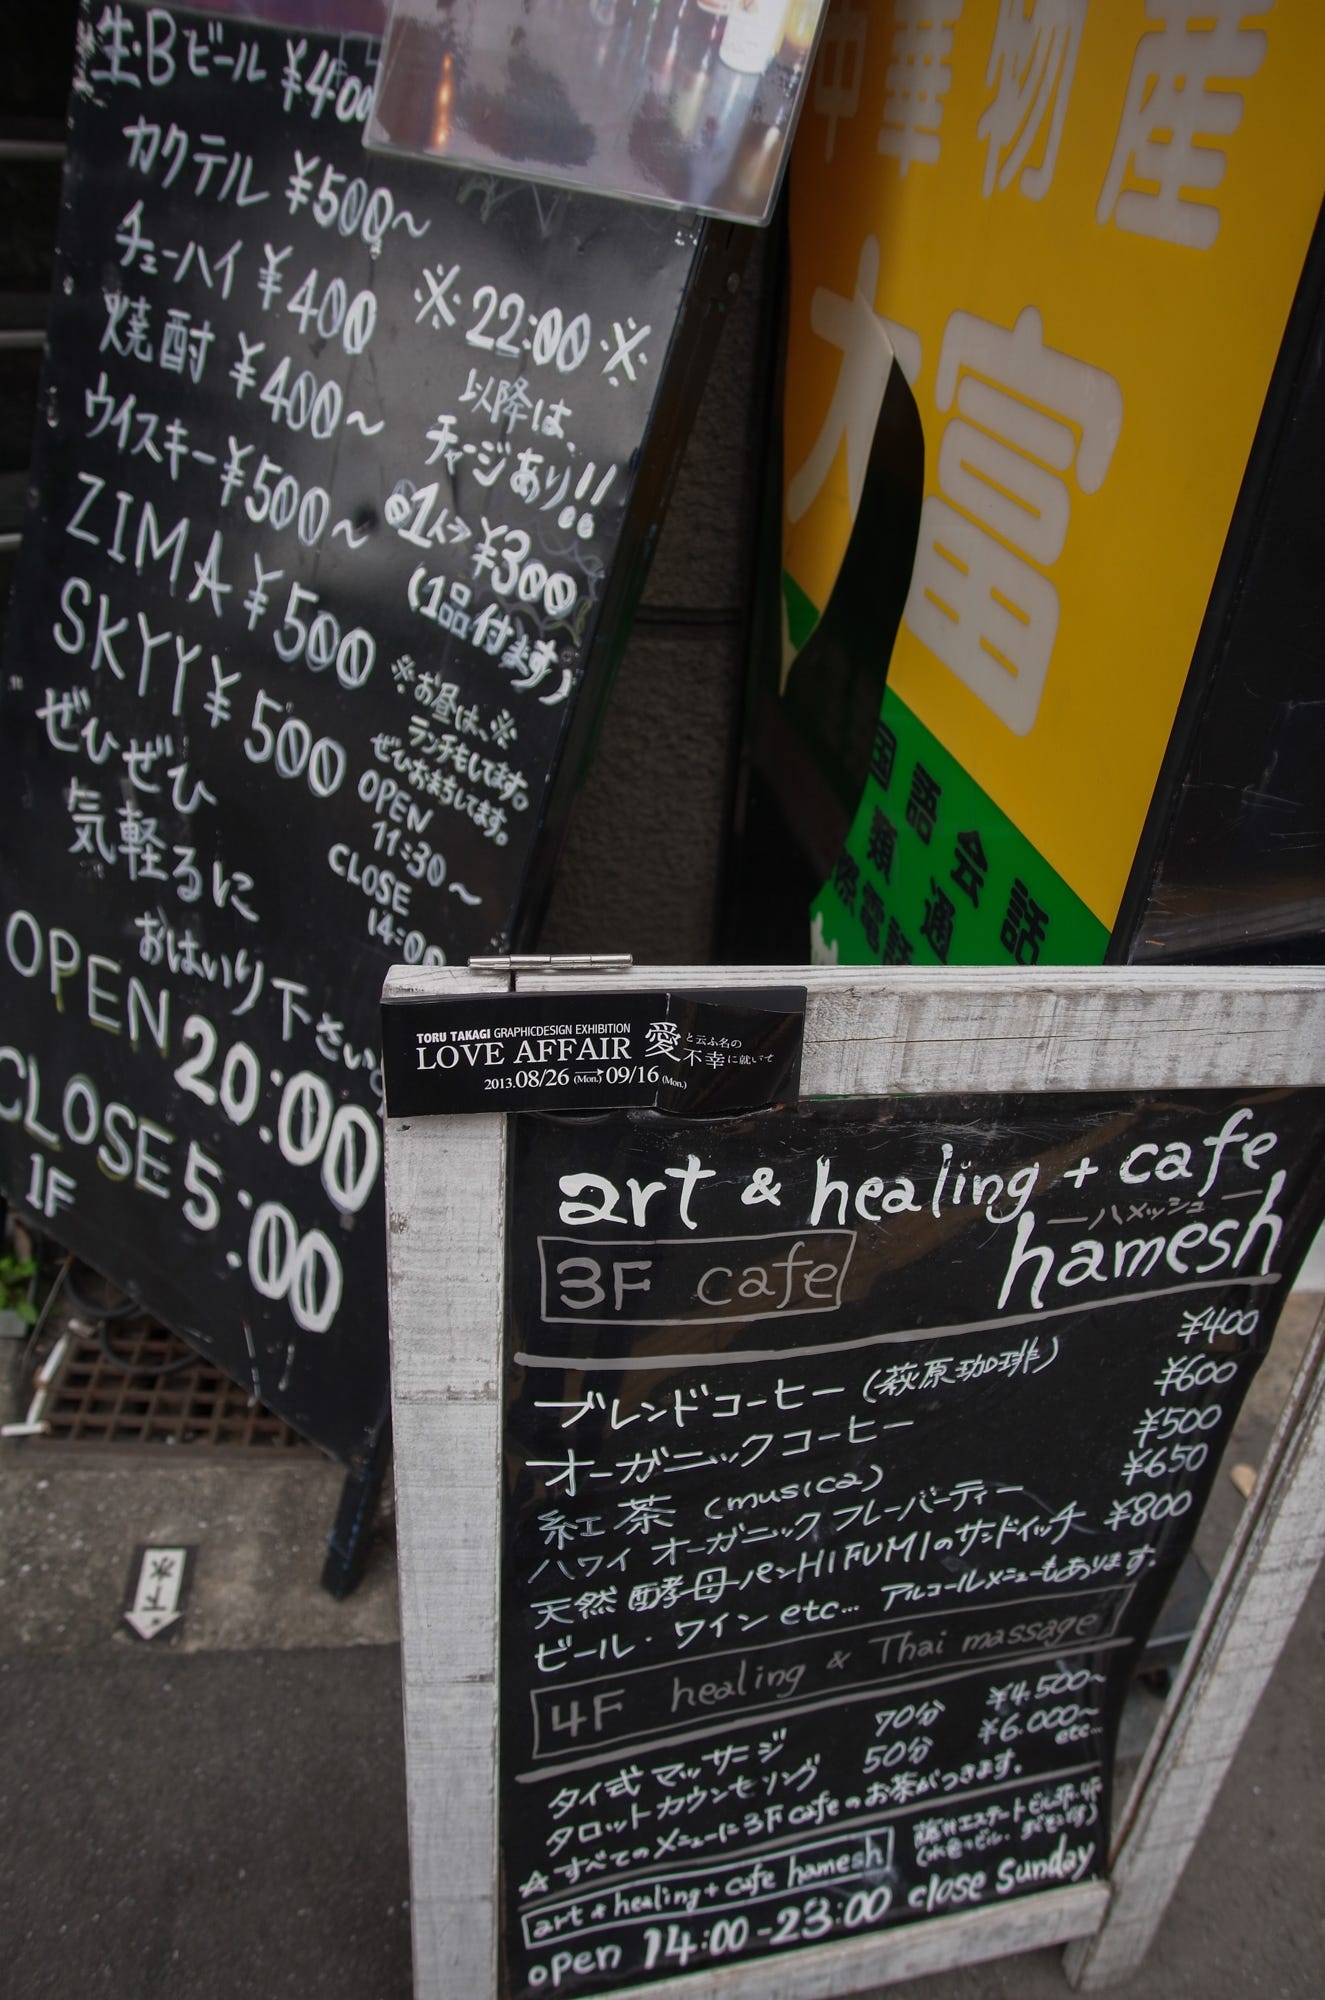 生・Bビール ¥400
カクテル ¥500〜
チューハイ ¥400
焼酎 ¥400〜
ウイスキー ¥500〜
ZIMA ¥500
SKYY ¥500
ぜひぜひ
気軽るに
おはいり下さい。
OPEN 20:00
CLOSE 5:00
1F
※22:00※
以降は、
チャージあり!!
●1人→¥300
(1品付ます)
※お昼は、※
ランチもしてます。
ぜひおまちしてます。
OPEN
11:30〜
CLOSE
14:00
中華物産
大富
国語会話
TORU TAKAGI GRAPHICDESIGN EXHIBITION
LOVE AFFAIR 愛と云ふ名の不幸に就いて
2013.08/26(Mon.)→09/16(Mon.)
art & healing + cafe
ーハメッシュー
hamesh
3F cafe
ブレンドコーヒー(萩原珈琲) ¥400
オーガニックコーヒー ¥600
紅茶(musica) ¥500
ハワイ オーガニックフレーバーティー ¥650
天然酵母パンHIFUMIのサンドイッチ ¥800
ビール・ワインetc... アルコールメニューもあります。
4F healing & Thai massage
タイ式マッサージ 70分 ¥4.500〜
タロットカウンセリング 50分 ¥6.000〜
etc...
☆すべてのメニューに3Fcafeのお茶がつきます。
art & healing + cafe hamesh
open 14:00-23:00 close Sunday